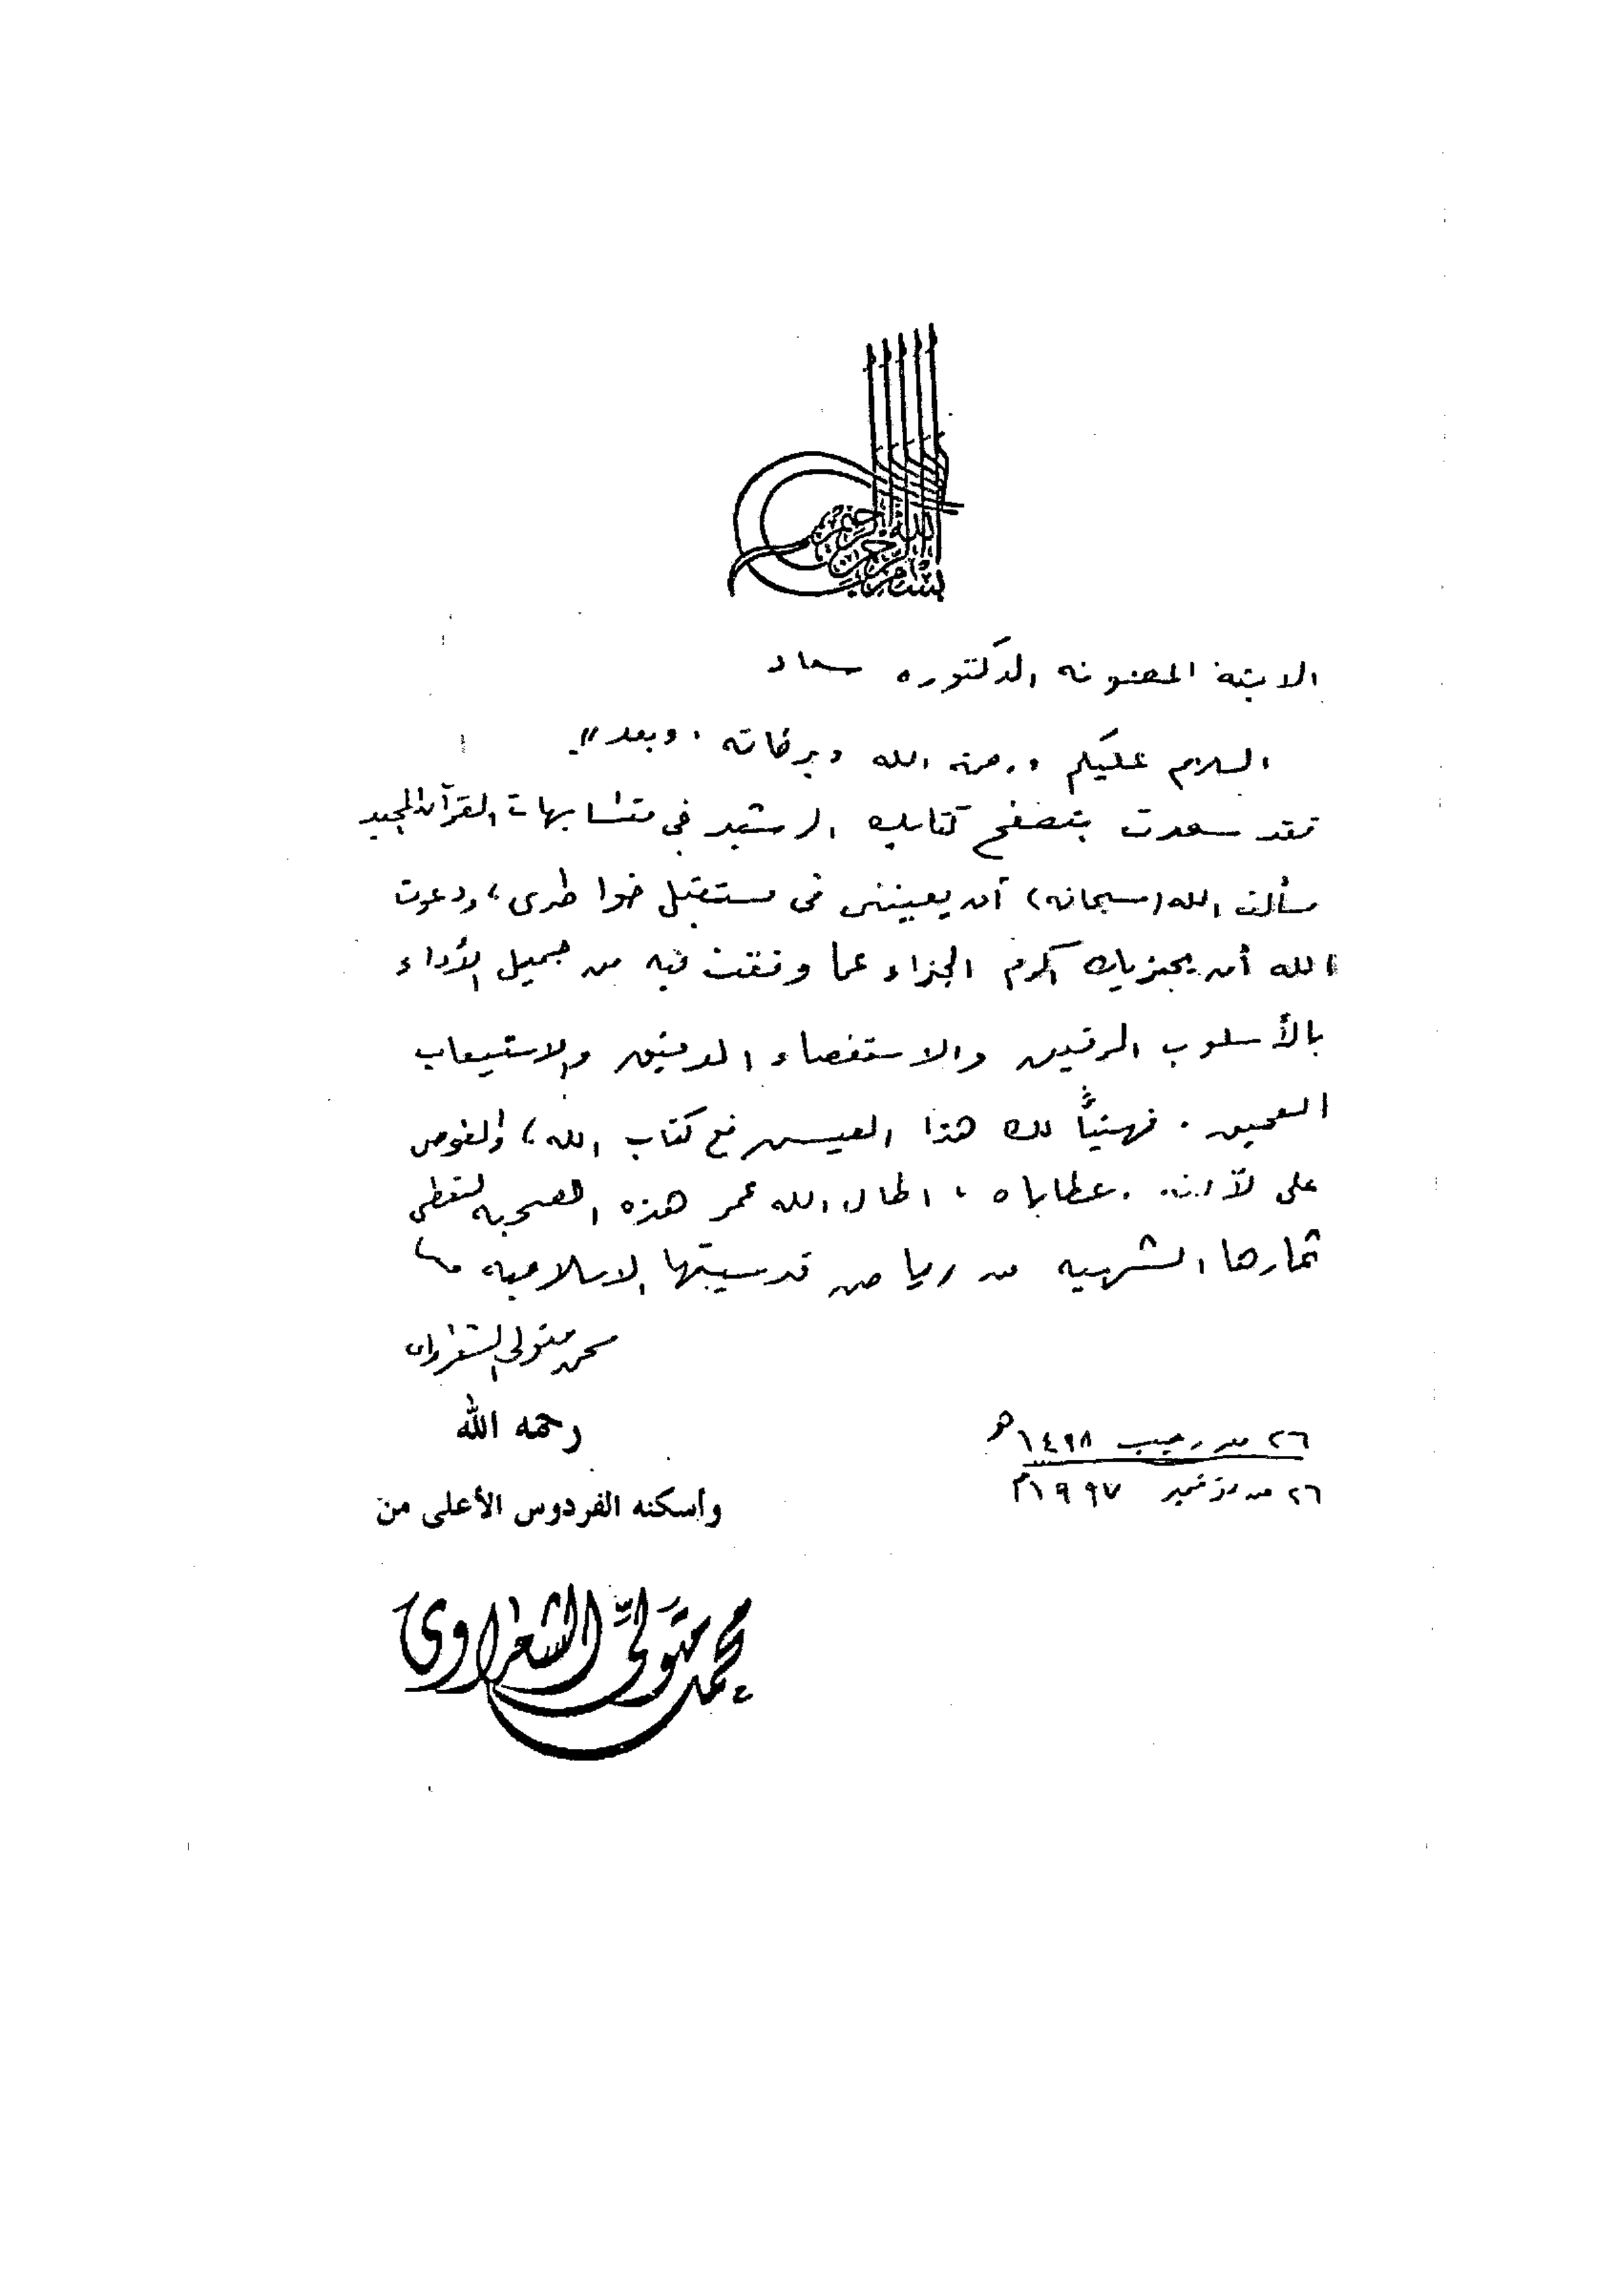 بسم الله الرحمن الرحيم
الابنة المصونه الدكتوره سعاد
السلام عليكم ورحمة الله وبركاته ، وبعد ..
فقد سعدت بتصفح كتابك الرشيد في متشابهات القرآن المجيد
سألت الله (سبحانه) أن يعيننى فى مستقبل خواطرى ، ودعوت
الله أن يجزيك أكرم الجزاء عما وفقت فيه من جميل الأداء
بالأسلوب الرقيق والاستقصاء الدقيق والاستيعاب
العميق . فهنيئاً لك هذا العيش مع كتاب الله ، والغوص
على لآلئ عطاياه ، اطال الله عمر هذه الصحبه لتعطى
ثمارها الشهيه من رياض قدسيتها الاسلاميه
محمد متولى الشعراوى
رحمه الله
٢٦ من رجب ١٤٩٨ هـ
وأسكنه الفردوس الأعلى من
٢٦ من نوفمبر ١٩٩٧م
محمد متولي الشعراوي